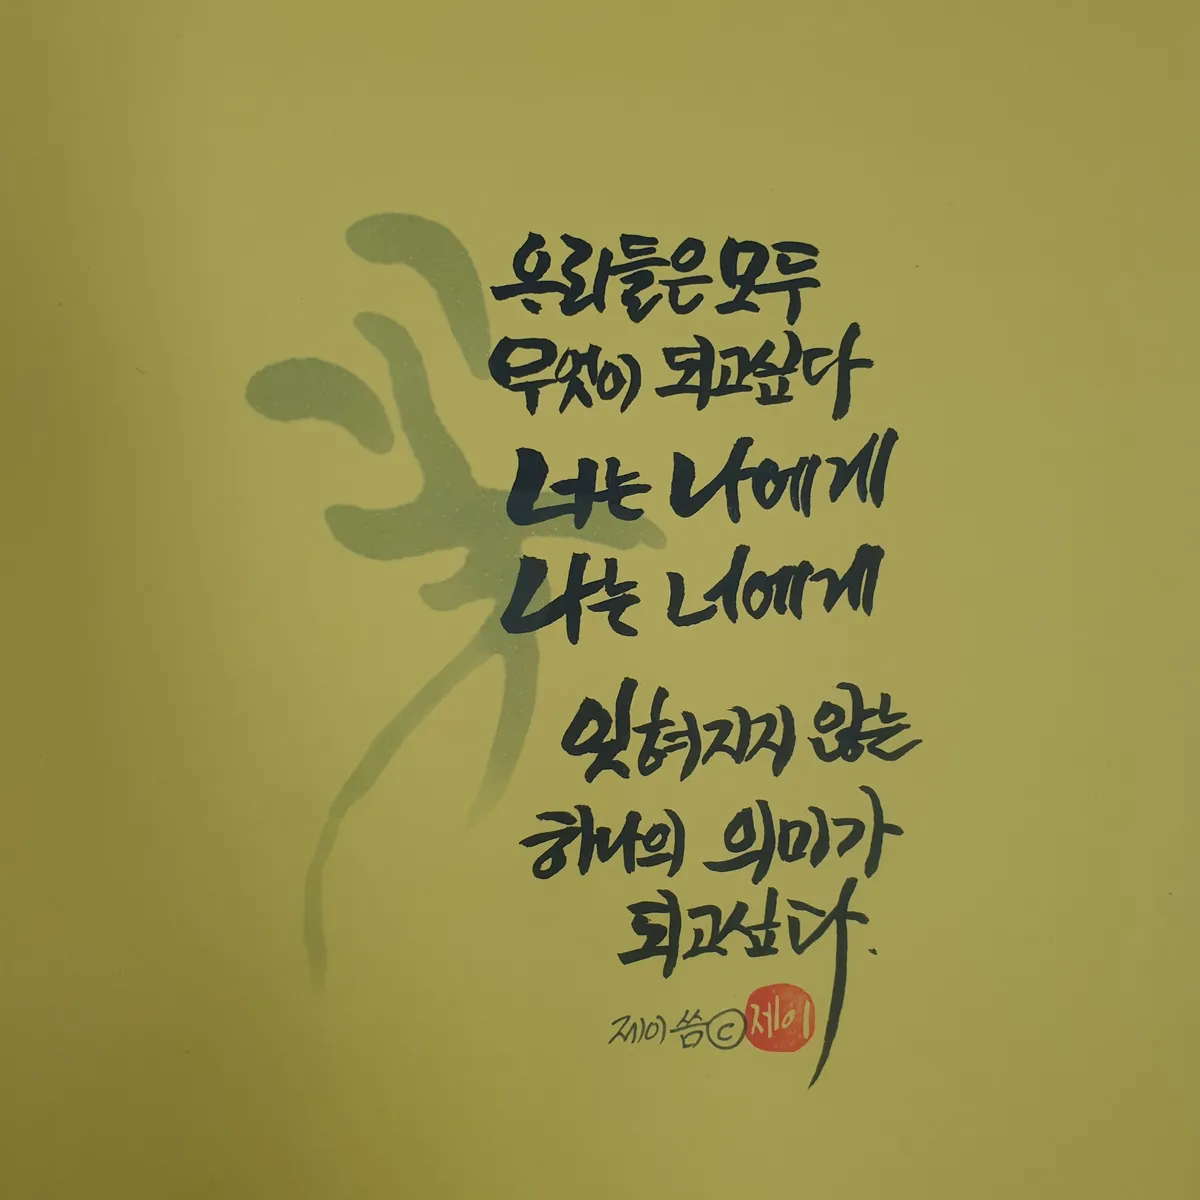 우리들은 모두
무엇이 되고싶다
너는 나에게
나는 너에게
잊혀지지 않는
하나의 의미가
되고싶다.
제이 씀 ©
제이